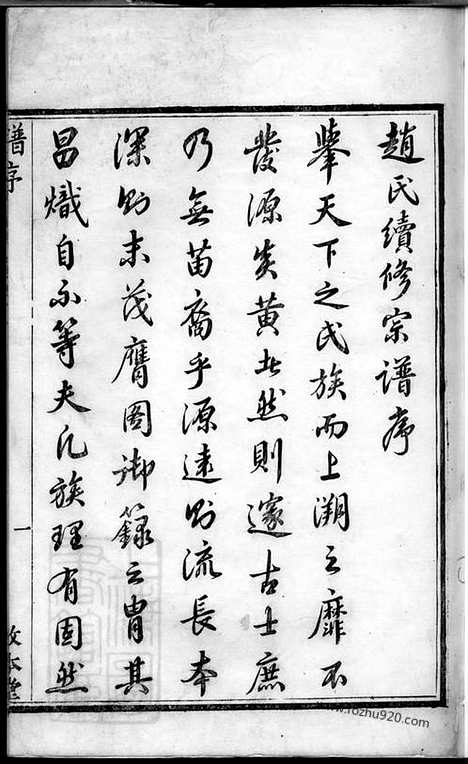 趙氏續修宗譜序
舉天下之氏族而上溯之靡不
發源炎黃者然則邃古士庶
乃無苗裔乎源遠則流長本
深則末茂膺圖御籙之胄其
昌熾自不等夫凡族理有固然
譜序
一
敦本堂
www.rozhu920.com